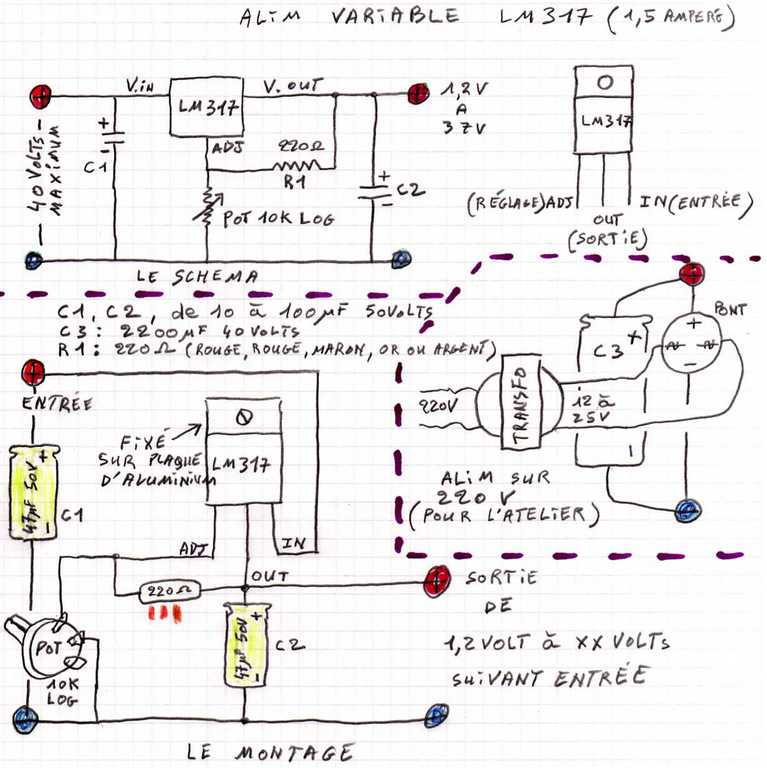 ALIM VARIABLE LM317 (1,5 AMPERE)
V.in
LM317
V.OUT
ADJ
220Ω
R1
+
-
C1
40 VOLTS
MAXIMUM
POT 10K LOG
+
-
C2
1,2V
A
37V
LE SCHEMA
LM317
(RÉGLAGE) ADJ
OUT
(SORTIE)
IN (ENTRÉE)
C1, C2, de 10 à 100µF 50VOLTS
C3: 2200µF 40 VOLTS
R1: 220Ω (ROUGE, ROUGE, MARON, OR OU ARGENT)
PONT
+
-
C3
+
-
220V
TRANSFO
12 à
25V
ALIM SUR
220 V
(POUR L'ATELIER)
+
ENTRÉE
FIXÉ
SUR PLAQUE
D'ALUMINIUM
LM317
+
47µF 50V
-
C1
ADJ
IN
OUT
220Ω
POT
10K
LOG
+
47µF 50V
-
C2
SORTIE
DE
1,2VOLT à XX VOLTS
SUIVANT ENTRÉE
LE MONTAGE